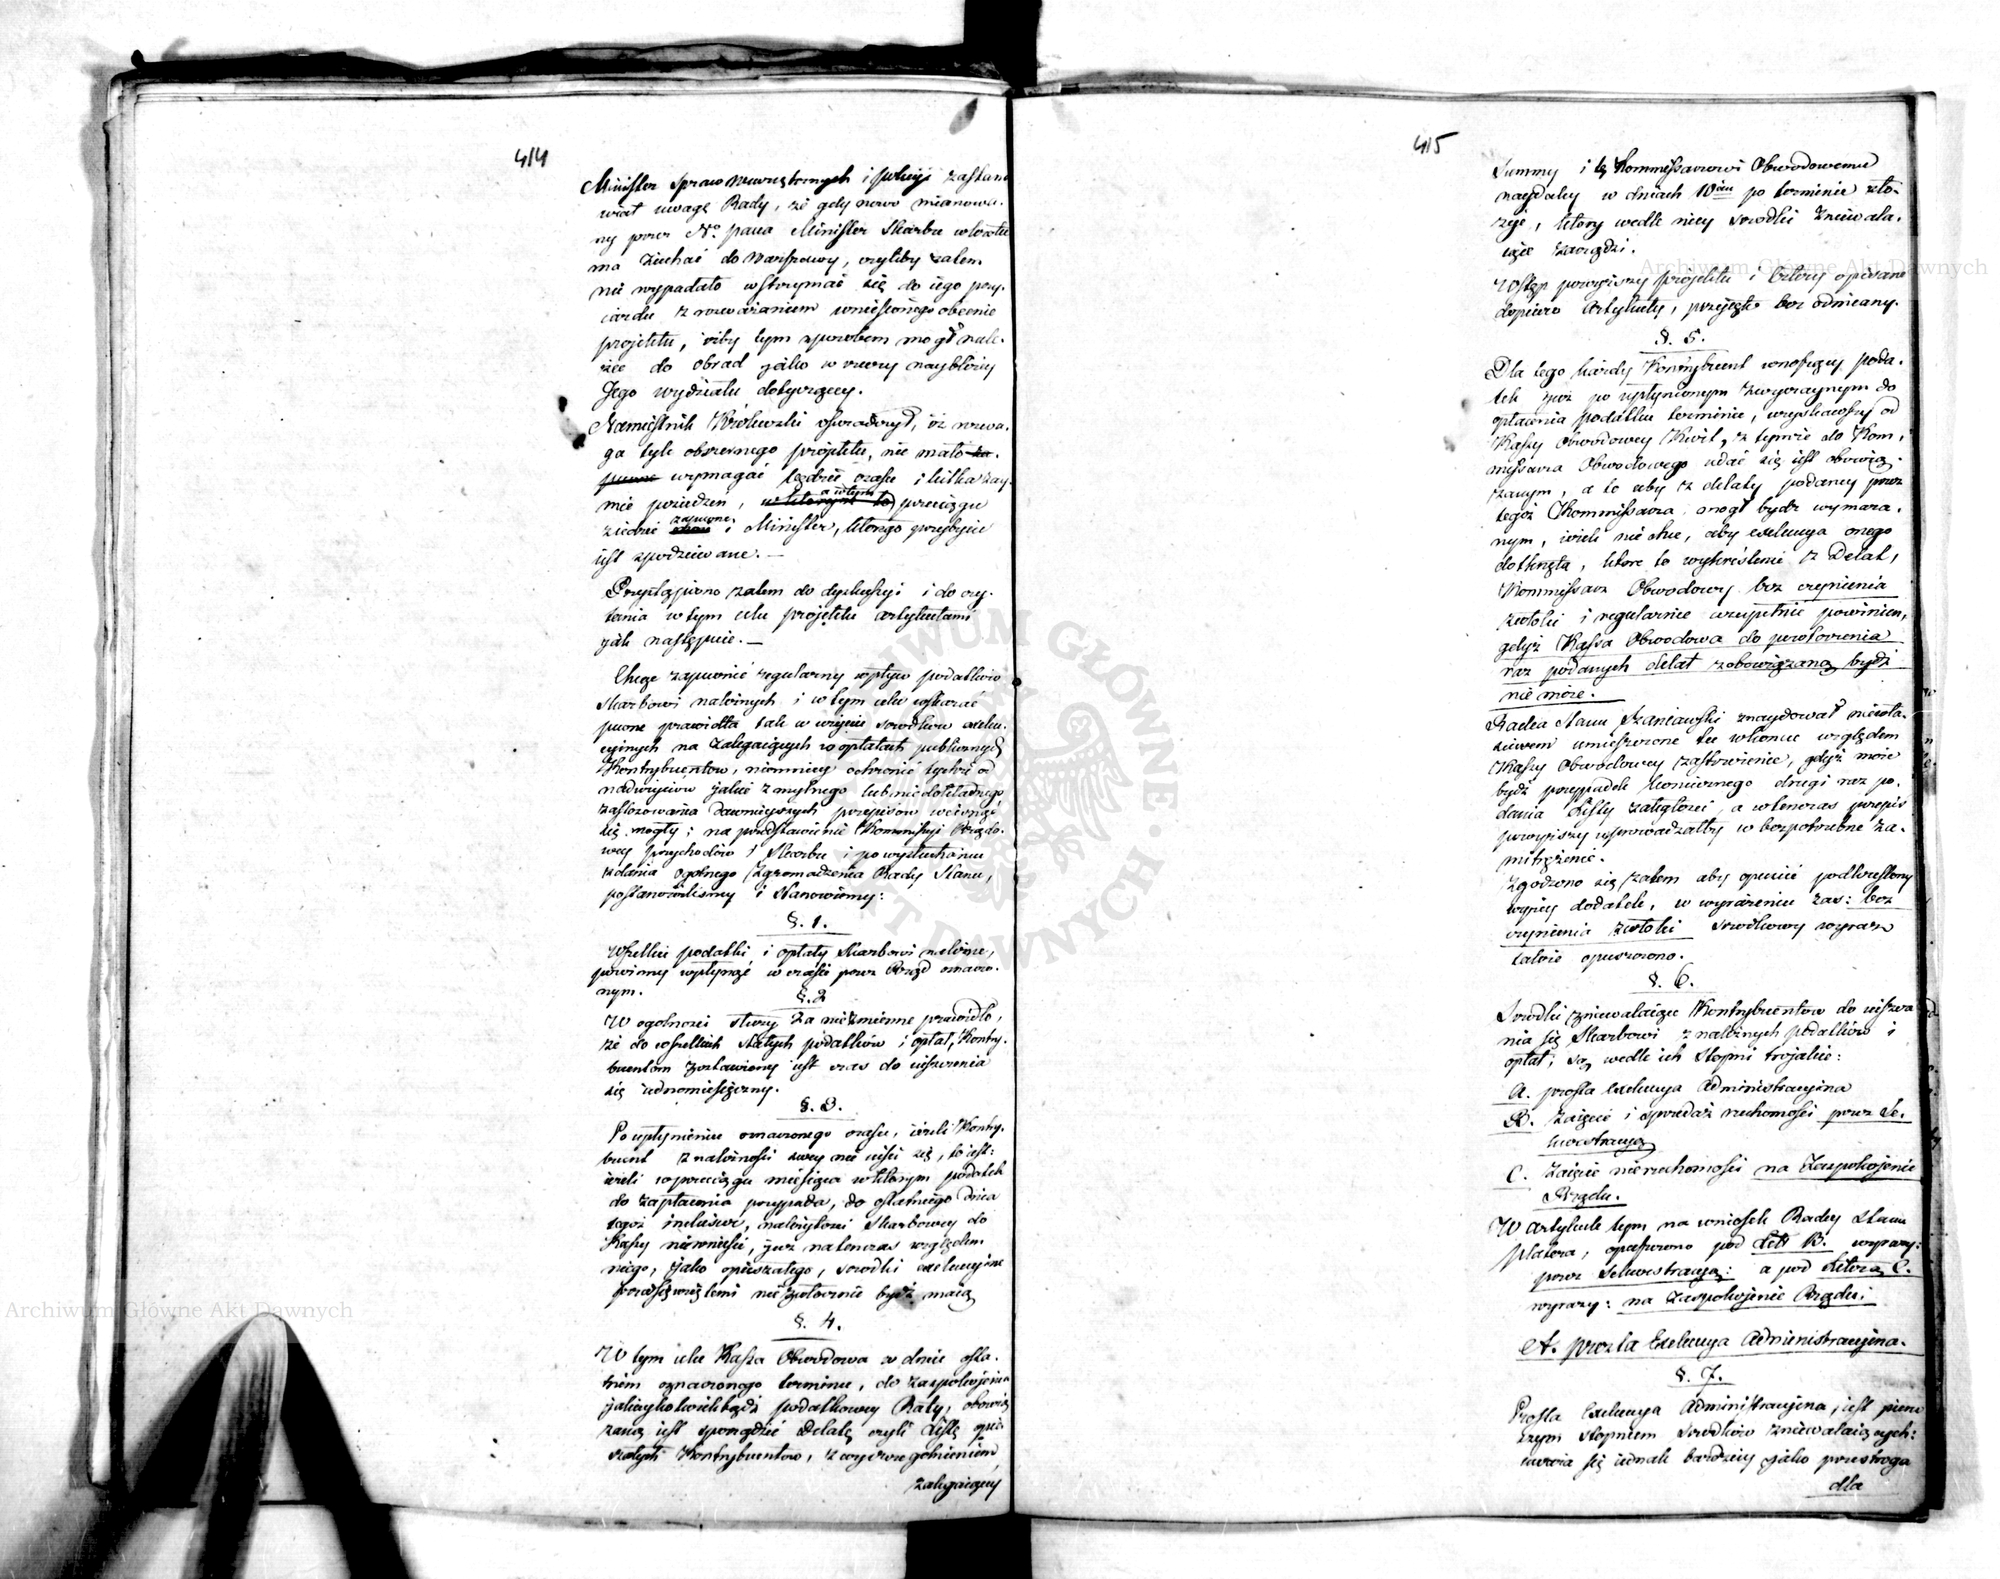 414
Minister Spraw Wewnętrznych i Policyi zastana
wiał uwagę Rady, że gdy nowo mianowa-
ny przez N° pana Minister Skarbu wkrótce
ma ziechać do Warszawy, czyliby zatem
nie wypadało wstrzymać się do iego przy-
iazdu z rozważaniem wniesionego obecnie
projektu, iżby tym sposobem mógł nale-
żeć do obrad jako w rzeczy naybliżey
Jego wydziału dotyczącey.
Namiestnik Królewski oświadczył, iż rozwa-
ga tyle obszernego projektu, nie mało
wymagać będzie czasu i kilka zay-
mie posiedzeń, a w tym przeciągu
ziedzie zapewne i Minister, którego przybycie
iest spodziewane. —
Przystąpiono zatem do dyskussyi i do czy-
tania w tym celu projektu artykułami
jak następuie. —
Chcąc zapewnić regularny wpływ podatków
Skarbowi należnych i w tym celu wskazać
pewne prawidła tak w użyciu środków exeku-
cyinych na zalegaiących w opłatach publicznych
Kontrybuentów, niemniey ochronić tychże od
nadużyciów jakie z mylnego lub niedokładnego
zastosowania dawnieyszych przepisów wcisnąć
się mogły; na przedstawienie Kommissyi Rządo-
wey Przychodów i Skarbu i po wysłuchaniu
zdania Ogólnego Zgromadzenia Rady Stanu,
postanowiliśmy i Stanowiemy:
§. 1.
Wszelkie podatki i opłaty Skarbowi należne,
powinny wpłynąć w czasie przez Rząd oznaczo-
nym.
§. 2
W ogólności służy za niezmienne prawidło,
że do wszelkich stałych podatków i opłat, Kontry-
buentom zostawiony iest czas do uiszczenia
się iednomiesięczny.
§. 3.
Po upłynieniu oznaczonego czasu, ieżeli Kontry-
buent z należności swey nie uiści się, to iest:
ieżeli w przeciągu miesiąca w którym podatek
do zapłacenia przypada, do ostatniego dnia
tegoż inclusive, należytości Skarbowey do
Kassy niewniesie, już natenczas względem
niego, jako opieszałego, środki exekucyine
przedsięwziętemi niezwłocznie bydź maią
§. 4.
W tym celu Kassa Obwodowa w dniu osta-
tnim oznaczonego terminu, do zaspokojenia
jakieykolwiekbądź podatkowey Raty, obowią
zaną iest sporządzić Delatę czyli Listę opie
szałych Kontrybuentów, z wyszczególnieniem
zalegaiącey
415
Summy i tę Kommissarzowi Obwodowemu
naydaley w dniach 10ciu po terminie zło-
żyć, który wedle niey środki zniewala-
iące zarządzi.
Wstęp powyższy projektu i cztery opisane
dopiero Artykuły, przyjęto bez odmiany.
§. 5.
Dla tego każdy Kontrybuent wnoszący poda-
tek już po upłynionym zwyczaynym do
opłacenia podatku terminie, uzyskawszy od
Kassy Obwodowey Kwit, z tymże do Kom-
missarza Obwodowego udać się iest obowią-
zanym, a to aby z delaty podaney przez
tegoż Kommissarza mógł bydź wymaza-
nym, ieżeli nie chce, aby exekucya onego
dotknęła, które to wykreślenie z Delat,
Kommissarz Obwodowy bez czynienia
zwłoki i regularnie uzupełnić powinien,
gdyż Kassa Obwodowa do powtórzenia
raz podanych delat zobowiązaną bydź
nie może.
Radca Stanu Szaniawski znaydował niewła-
ściwem umieszczone tu w końcu względem
Kassy Obwodowey zastrzeżenie, gdyż może
bydź przypadek koniecznego drugi raz po-
dania Listy zaległości, a wtenczas przepis
powyższy wprowadzałby w bezpotrzebne za-
mitrężenie.
Zgodzono się zatem aby opuścić podkreślony
wyżey dodatek, w wyrażeniu zaś: bez
czynienia zwłoki środkowy wyraz
także opuszczono.
§. 6.
Środki zniewalaiące Kontrybuentów do uiszcza
nia się Skarbowi z należnych podatków i
opłat, są wedle ich stopni troiakie:
A. prosta Exekucya Administracyina
B. Zaięcie i sprzedaż ruchomości przez Se-
kwestracyą
C. Zaięcie nieruchomości na Zaspokojenie
Rządu.
W artykule tym na wniosek Radcy Stanu
Platera, opuszczono pod Litt B. wyrazy:
przez Sekwestracyą: a pod Literą C.
wyrazy: na Zaspokojenie Rządu:
A. prosta Exekucya Administracyina.
§. 7.
Prosta Exekucya Administracyina, iest pierw
szym stopniem środków zniewalaiących:
uważa się iednak bardziey jako przestroga
dla
Archiwum Główne Akt Dawnych
Archiwum Główne Akt Dawnych